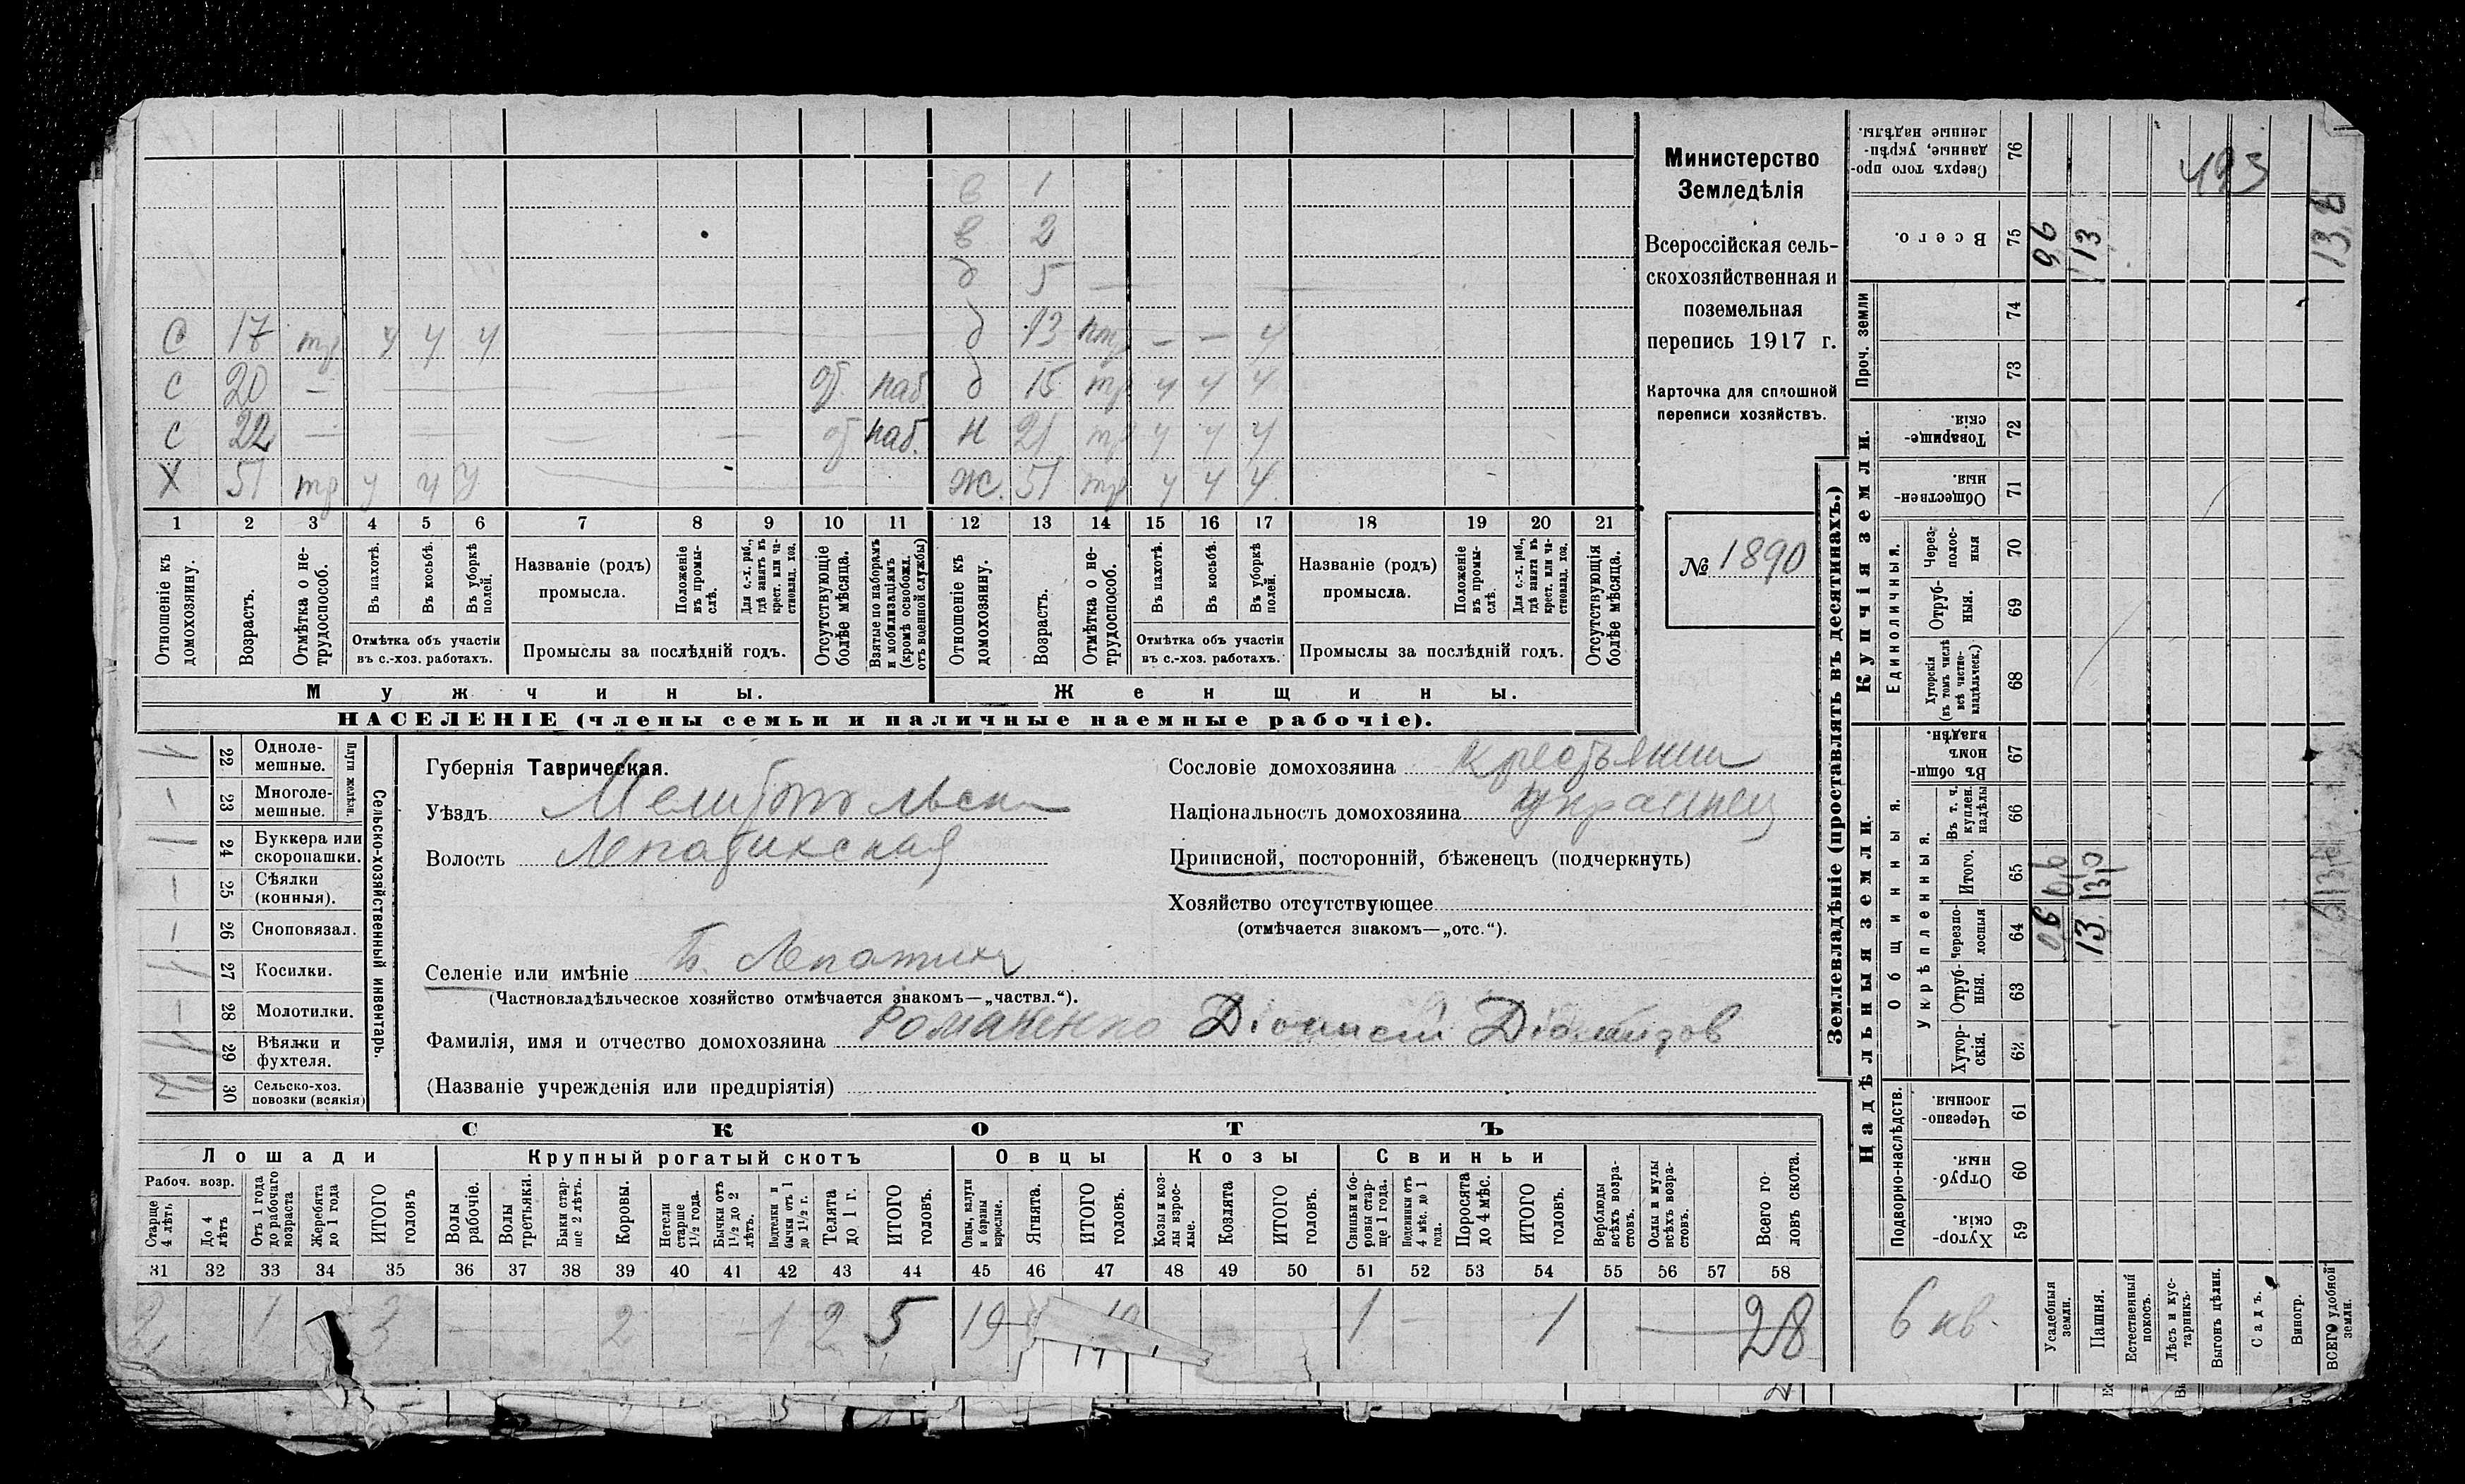 в 1
в 2
д 5 —
С 17 тр ч ч ч д 13 птр — — ч
с 20 — от. наб д 15 тр ч ч ч
с 22 — от наб. н 21 тр ч ч ч
Х 51 тр ч ч ч ж. 51 тр ч ч ч
1 2 3 4 5 6 7 8 9 10 11 12 13 14 15 16 17 18 19 20 21
Отношеніе къ домохозяину.
Возрастъ.
Отмѣтка о не-трудоспособ.
Въ пахотѣ.
Въ косьбѣ.
Въ уборкѣ полей.
Отмѣтка объ участіи
въ с.-хоз. работахъ.
Названіе (родъ)
промысла.
Положеніе въ промы-слѣ.
Для с.-х. раб., гдѣ занятъ въ крест. или ча-стновлад. хоз.
Промыслы за послѣдній годъ.
Отсутствующіе болѣе мѣсяца.
Взятые по наборамъ и мобилизаціямъ (кромѣ освобожд. отъ военной службы)
Отношеніе къ домохозяину.
Возрастъ.
Отмѣтка о не-трудоспособ.
Въ пахотѣ.
Въ косьбѣ.
Въ уборкѣ полей.
Отмѣтка объ участіи
въ с.-хоз. работахъ.
Названіе (родъ)
промысла.
Положеніе въ промы-слѣ.
Для с.-х. раб., гдѣ занята въ крест. или ча-стновлад. хоз.
Промыслы за послѣдній годъ.
Отсутствующія болѣе мѣсяца.
Мужчины.
Женщины.
НАСЕЛЕНІЕ (члены семьи и наличные наемные рабочіе).
Министерство
Земледѣлія
Всероссійская сель-
скохозяйственная и
поземельная
перепись 1917 г.
Карточка для сплошной
переписи хозяйствъ.
№ 1890
Сельско-хозяйственный инвентарь.
Плуги желѣзн.
1 22 Одноле-мешные.
— 23 Многоле-мешные.
1 24 Буккера или скоропашки.
— 25 Сѣялки (конныя).
— 26 Сноповязал.
1 27 Косилки.
— 28 Молотилки.
1 29 Вѣялки и фухтеля.
30 Сельско-хоз. повозки (всякія)
Губернія Таврическая.
Уѣздъ Мелитопольск
Волость Лепатихская
Селеніе или имѣніе Б. Лепатиха
(Частновладѣльческое хозяйство отмѣчается знакомъ—„частвл.“).
Фамилія, имя и отчество домохозяина Романенко Діонисій Діомидов
(Названіе учрежденія или предпріятія)
Сословіе домохозяина крестьянин
Національность домохозяина украинец
Приписной, посторонній, бѣженецъ (подчеркнуть)
Хозяйство отсутствующее
(отмѣчается знакомъ—„отс.“).
СКОТЪ
Лошади Крупный рогатый скотъ Овцы Козы Свиньи
Рабоч. возр.
Старше 4 лѣтъ
До 4 лѣтъ
Отъ 1 года до рабочаго возраста
Жеребята до 1 года
ИТОГО головъ
Волы рабочіе.
Волы третьяки.
Быки стар-ше 2 лѣтъ.
Коровы.
Нетели старше 1½ года.
Бычки отъ 1½ до 2 лѣтъ.
Подтелки и бычки отъ 1 до 1½ г.
Телята до 1 г.
ИТОГО головъ.
Овцы, валухи и бараны взрослые.
Ягнята.
ИТОГО головъ.
Козы и коз-лы взрос-лые.
Козлята
ИТОГО головъ.
Свиньи и бо-ровы стар-ще 1 года.
Подсвинки отъ 4 мѣс. до 1 года.
Поросята до 4 мѣс.
ИТОГО головъ.
Верблюды всѣхъ возра-стовъ.
Ослы и мулы всѣхъ возра-стовъ.
Всего го-ловъ скота.
31 32 33 34 35 36 37 38 39 40 41 42 43 44 45 46 47 48 49 50 51 52 53 54 55 56 57 58
2 1 3 — 2 — 1 2 5 19 1 — 1 — 28
Землевладѣніе (проставлять въ десятинахъ.)
Сверхъ того про-данные, укрѣп-ленные надѣлы. 76
Всего. 75 06 13 13,6
493
Проч. земли 74 73
Купчія земли.
Товарище-скія. 72
Обществен-ныя. 71
Единоличныя.
Через-полос-ныя 70
Отруб-ныя. 69
Хуторскія (въ томъ числѣ всѣ частно-владѣльческ.) 68
Надѣльныя земли.
Общинныя.
Въ общи-номъ владѣн. 67
Укрѣпленныя.
Въ т. ч. куплен. надѣлы 66
Итого. 65 0,6 13,0
Черезпо-лосныя 64 06 13
Отруб-ныя. 63
Хутор-скія. 62
Подворно-наслѣдств.
Черезпо-лосныя. 61
Отруб-ныя. 60
Хутор-скія. 59
6 кв.
Усадебныя земли.
Пашня.
Естественный покосъ.
Лѣсъ и кус-тарникъ.
Выгонъ цѣлин.
Садъ.
Виногр.
ВСЕГО удобной земли.